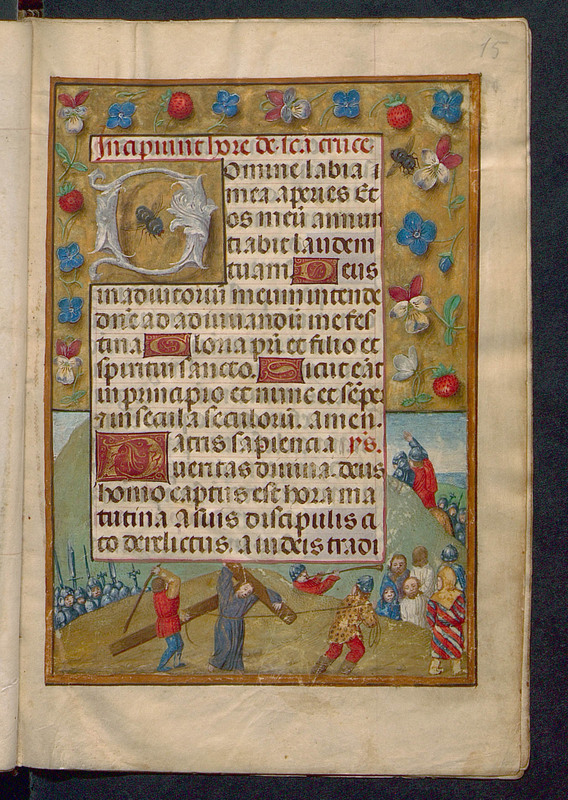 15
Incipiunt hore de sca cruce
Domine labia
mea aperies Et
os meū annun
tiabit laudem
tuam. Deus
in adiutoriū meum intende
dnē ad adiuuandū me fes
tina Gloria pri et filio et
spiritui sancto. Sicut erat
in principio et nunc et semper
et in secula seculorū. amen.
Patris sapiencia ys.
ueritas diuina deus
homo captus est hora ma
tutina A suis discipulis ci
to derelictus. a iudeis tradi